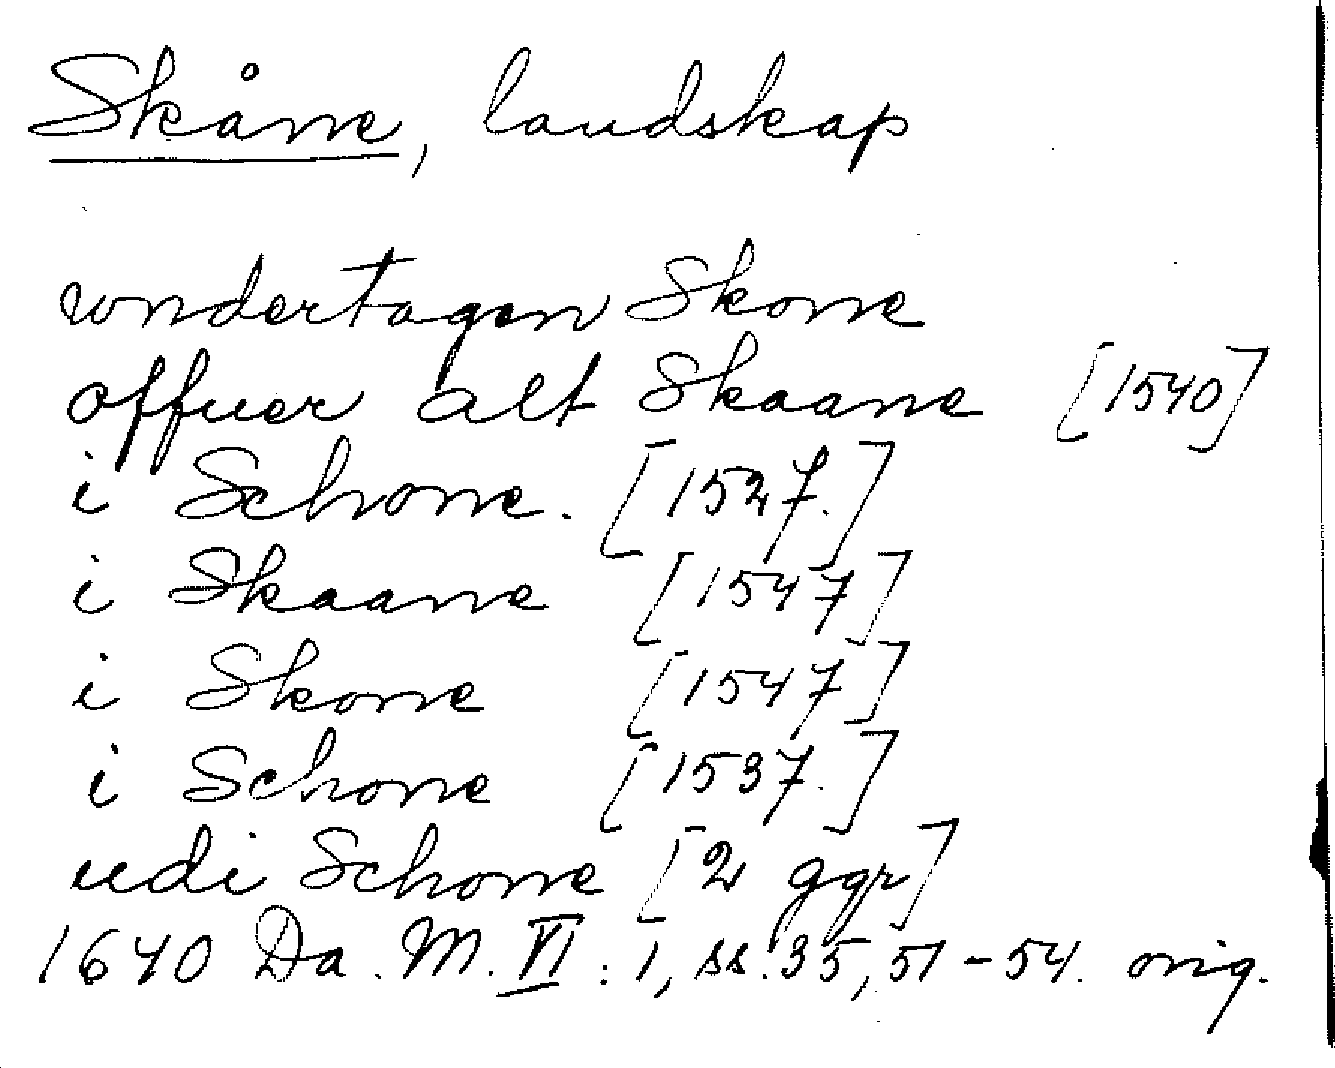 Skåne, landskap
vndertagen Skone
offuer alt Skaane [1540]
i Schone. [1527.]
i Skaane [1547]
i Skone [1547]
i Schone [1537.]
udi Schone [2 ggr]
1640 Da. M. VI: 1, ss. 35, 51-54. orig.